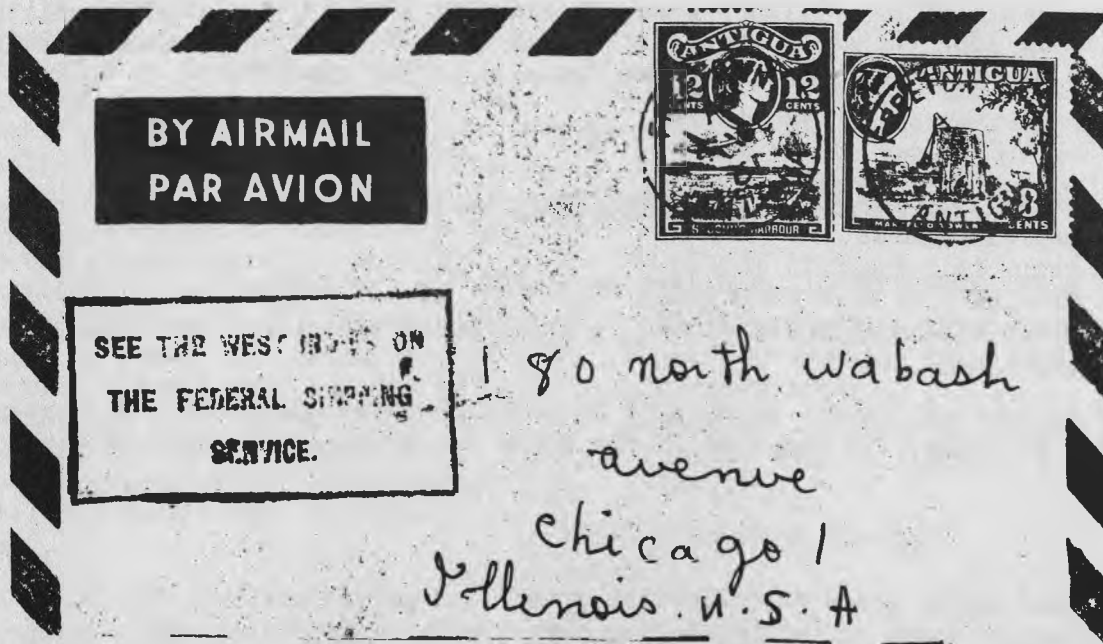 BY AIRMAIL
PAR AVION
ANTIGUA
12 12
CENTS
ST. JOHN'S HARBOUR
ANTIGUA
8
CENTS
ANTIG
SEE THE WEST INDIES ON
THE FEDERAL SHIPPING
SERVICE.
180 north wabash
avenue
chicago 1
Illinois. U.S.A